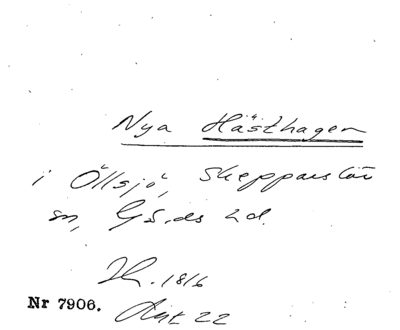 Nya Hästhagen
i Öllsjö, Skepparslöv
sn, Gä.ds hd.
1816
Nr 7906. Akt 22